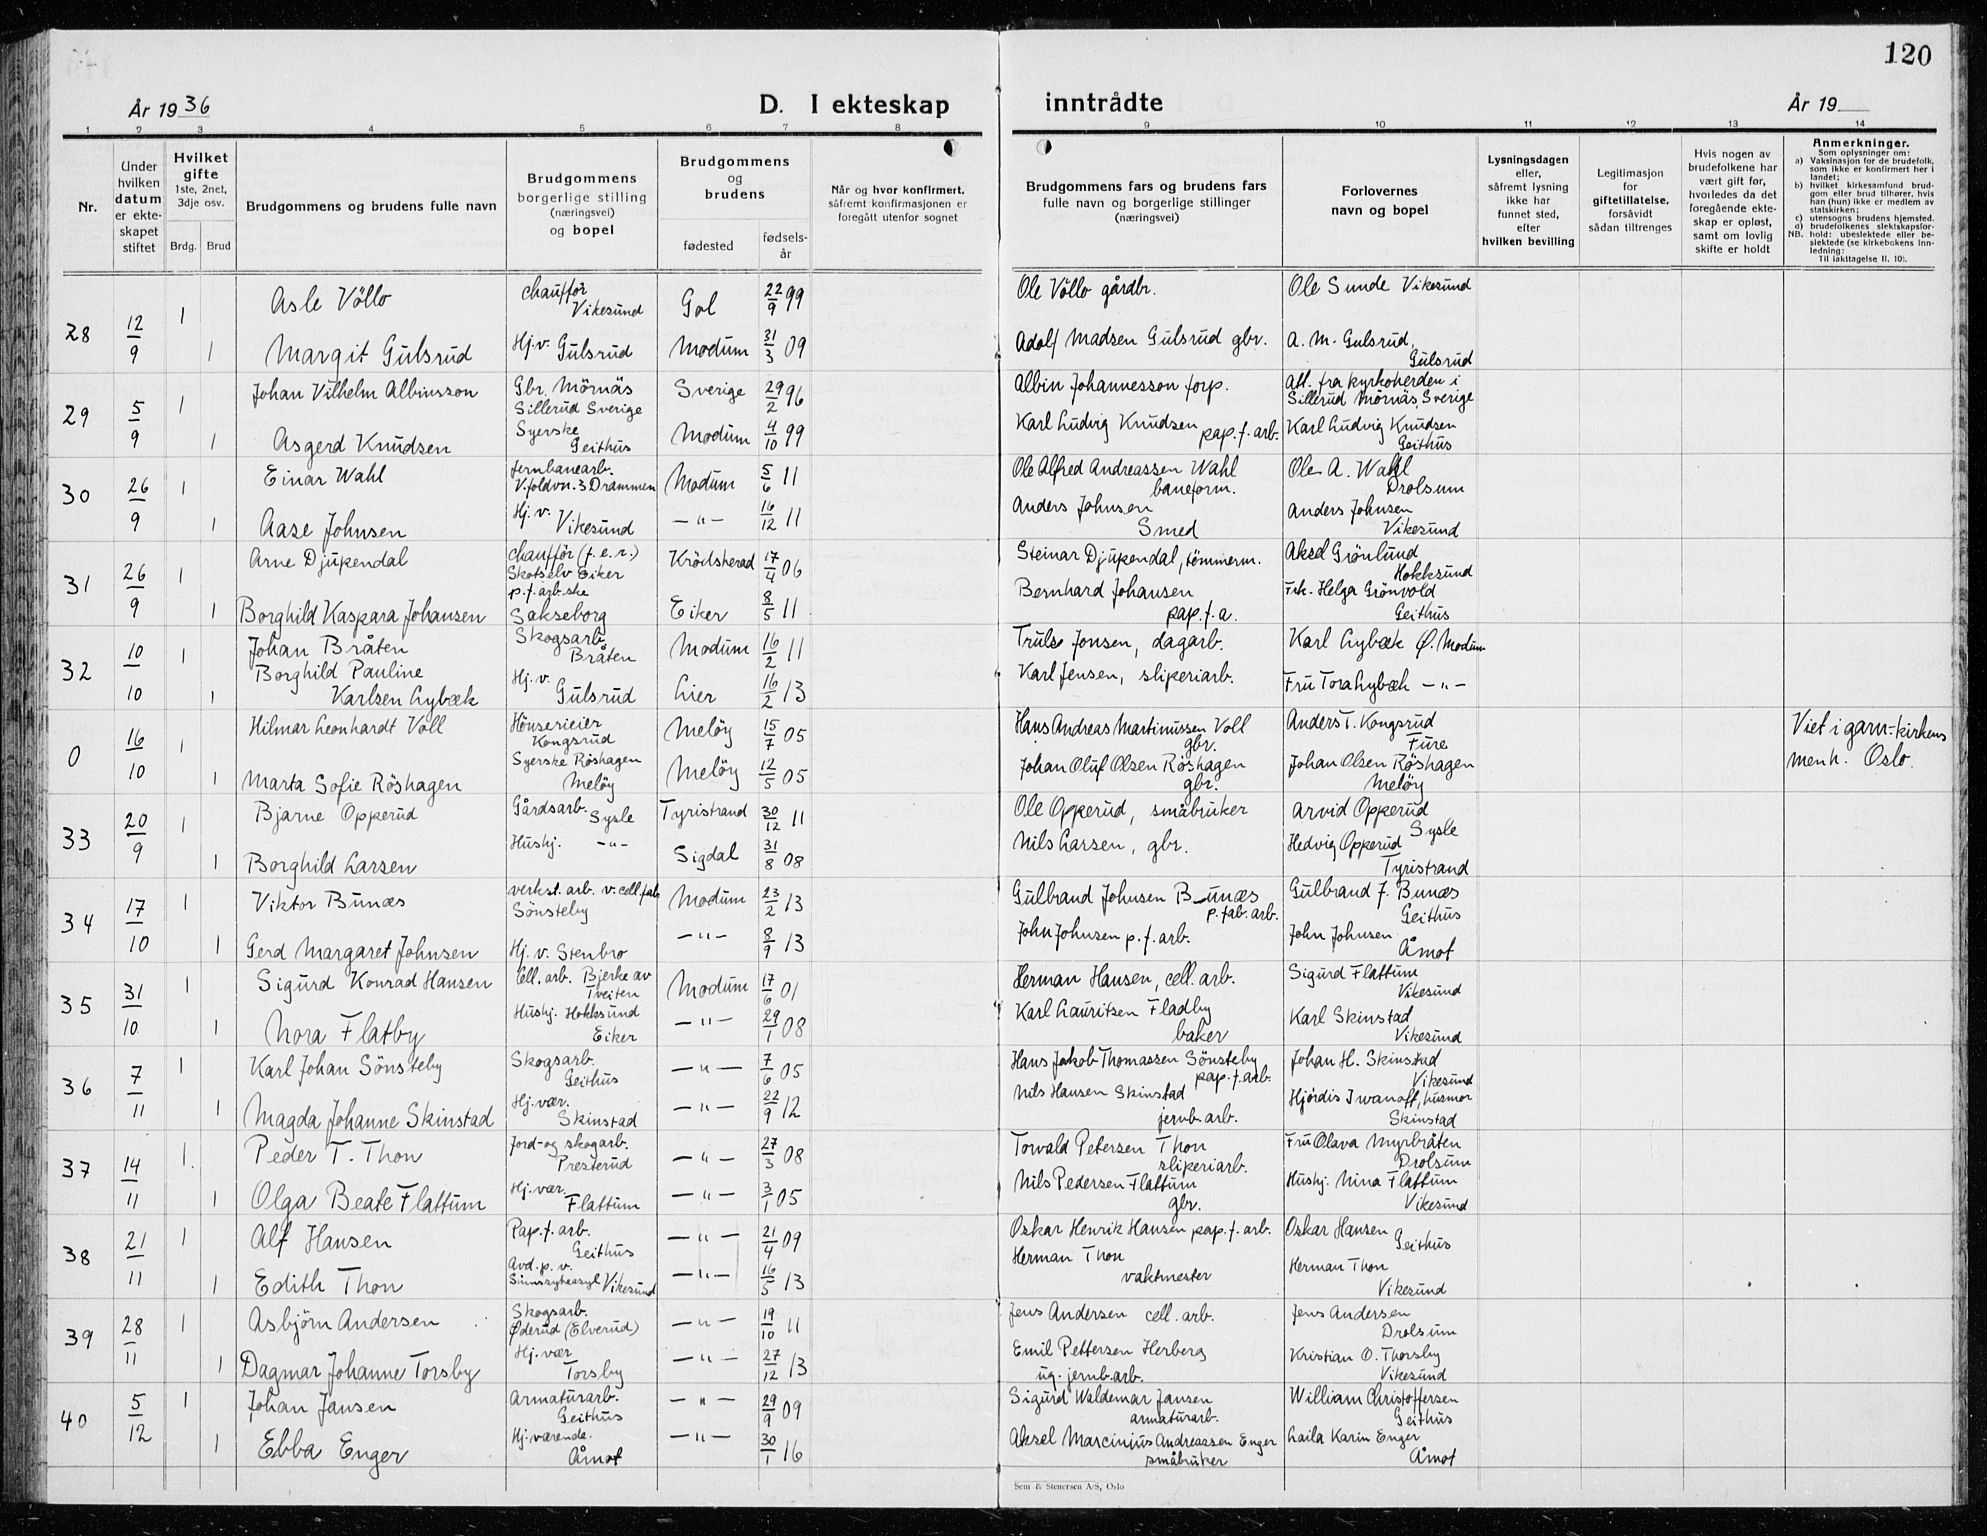 120
År 1936
D. I ekteskap inntrådte
År 19
1 2 3 4 5 6 7 8 9 10 11 12 13 14
Nr.
Under hvilken datum er ekteskapet stiftet
Hvilket gifte 1ste, 2net, 3dje osv.
Brdg. Brud
Brudgommens og brudens fulle navn
Brudgommens borgerlige stilling (næringsvei) og bopel
Brudgommens og brudens
fødested
fødselsår
Når og hvor konfirmert, såfremt konfirmasjonen er foregått utenfor sognet
Brudgommens fars og brudens fars fulle navn og borgerlige stillinger (næringsvei)
Forlovernes navn og bopel
Lysningsdagen eller, såfremt lysning ikke har funnet sted, efter hvilken bevilling
Legitimasjon for giftetillatelse, forsåvidt sådan tiltrenges
Hvis nogen av brudefolkene har vært gift før, hvorledes da det foregående ekteskap er opløst, samt om lovlig skifte er holdt
Anmerkninger.
Som oplysninger om:
a) Vaksinasjon for de brudefolk, som ikke er konfirmert her i landet;
b) hvilket kirkesamfund brudgom eller brud tilhører, hvis han (hun) ikke er medlem av statskirken;
c) utensogns brudens hjemsted.
d) brudefolkenes slektskapsforhold: ubeslektede eller beslektede (se kirkebokens innledning:
NB. Til iakttagelse II. 10).
28 12/9 1 Asle Völlo chauffør Vikesund Gol 22/9 99 Ole Völlo gårdbr. Ole Sunde Vikesund
1 Margit Gulsrud Hj.v. Gulsrud Modum 31/3 09 Adolf Madsen Gulsrud gbr. A. M. Gulsrud, Gulsrud
29 5/9 1 Johan Vilhelm Albinsson Gbr. Mörnäs Sillerud Sverige Sverige 29/2 96 Albin Johannesson torp. Att. fra kyrkoherden i Sillerud Mörnäs, Sverige
1 Asgerd Knudsen Syerske Geithus Modum 4/10 99 Karl Ludvig Knudsen pap.f.arb. Karl Ludvig Knudsen Geithus
30 26/9 1 Einar Wahl jernbanearb. V.foldvn. 3 Drammen Modum 5/6 11 Ole Alfred Andreassen Wahl baneform. Ole A. Wahl Drolsum
1 Aase Johnsen Hj.v. Vikesund —"— 16/12 11 Anders Johnsen Smed Anders Johnsen Vikesund
31 26/9 1 Arne Djupendal chauffør (f.e.r.) Skotselv Eiker Krödsherad 17/4 06 Steinar Djupendal, tömmerm. Aksel Grönlund Hokksund
1 Borghild Kaspara Johansen p.f.arb.ske Sakseborg Eiker 8/5 11 Bernhard Johansen pap.f.a. Frk. Helga Grönvold Geithus
32 10/10 1 Johan Bråten Skogsarb. Bråten Modum 16/2 11 Truls Jonsen, dagarb. Karl Lybæk Ø. Modum
1 Borghild Pauline Karlsen Lybæk Hj.v. Gulsrud Lier 16/2 13 Karl Jensen, sliperiarb. Fru Tora Lybæk —"—
0 16/10 1 Hilmar Leonhardt Voll Hönserieier Kongsrud Meløy 15/7 05 Hans Andreas Martinussen Voll gbr. Anders T. Kongsrud Fure Viet i garn.-kirkens
1 Marta Sofie Röshagen Syerske Röshagen Meløy Meløy 12/5 05 Johan Oluf Olsen Röshagen gbr. Johan Olsen Röshagen Meløy menh. Oslo.
33 20/9 1 Bjarne Opperud Gårdsarb. Sysle Tyristrand 30/12 11 Ole Opperud, småbruker Arvid Opperud Sysle
1 Borghild Larsen Hushj. —"— Sigdal 31/8 08 Nils Larsen, gbr. Hedvig Opperud Tyristrand
34 17/10 1 Viktor Bunæs verkst. arb. v. cell.fab. Sönsteby Modum 23/2 13 Gulbrand Johnsen Bunæs p.fab.arb. Gulbrand J. Bunæs Geithus
1 Gerd Margaret Johnsen Hj.v. Stenbro —"— 8/9 13 John Johnsen p.f.arb. John Johnsen Åmot
35 31/10 1 Sigurd Konrad Hansen Cell. arb. Bjerke av Tveiten Modum 17/6 01 Herman Hansen, cell. arb. Sigurd Flattum Vikesund
1 Nora Flatby Hushj. Hokksund Eiker —"— 29/1 08 Karl Lauritsen Fladby baker Karl Skinstad Vikesund
36 7/11 1 Karl Johan Sönsteby Skogsarb. Geithus —"— 7/6 05 Hans Jakob Thomassen Sönsteby pap.f.arb. Johan H. Skinstad Vikesund
1 Magda Johanne Skinstad Hj.vær. Skinstad —"— 22/9 12 Nils Hansen Skinstad jernb.arb. Hjördis Iwanoff, husmor Skinstad
37 14/11 1. Peder T. Thon Jord- og skogarb. Presterud —"— 27/3 08 Torvald Petersen Thon sliperiarb. Fru Olava Myrbråten Drolsum
1 Olga Beate Flattum Hj.vær. Flattum —"— 3/1 05 Nils Pedersen Flattum gbr. Hushj. Nina Flattum Vikesund
38 21/11 1 Alf Hansen Pap.f.arb. Geithus —"— 21/4 09 Oskar Henrik Hansen pap.f.arb. Oskar Hansen Geithus
1 Edith Thon Avd.p.v. Sinnssykeasyl Vikesund —"— 16/5 13 Herman Thon vaktmester Herman Thon Vikesund
39 28/11 1 Asbjörn Andersen Skogsarb. Øderud (Elverud) —"— 19/10 11 Jens Andersen cell. arb. Jens Andersen Drolsum
1 Dagmar Johanne Torsby Hj.vær Torsby —"— 27/12 13 Emil Pettersen Herberg ug. jernb.arb. Kristian O. Thorsby Vikesund
40 5/12 1 Johan Jansen Armaturarb. Geithus —"— 29/9 09 Sigurd Waldemar Jansen armaturarb. William Christoffersen Geithus
1 Ebba Enger Hj.værende. Åmot —"— 30/1 16 Aksel Marcinius Andreassen Enger småbruker Laila Karin Enger Åmot
Sem & Stenersen A/S, Oslo